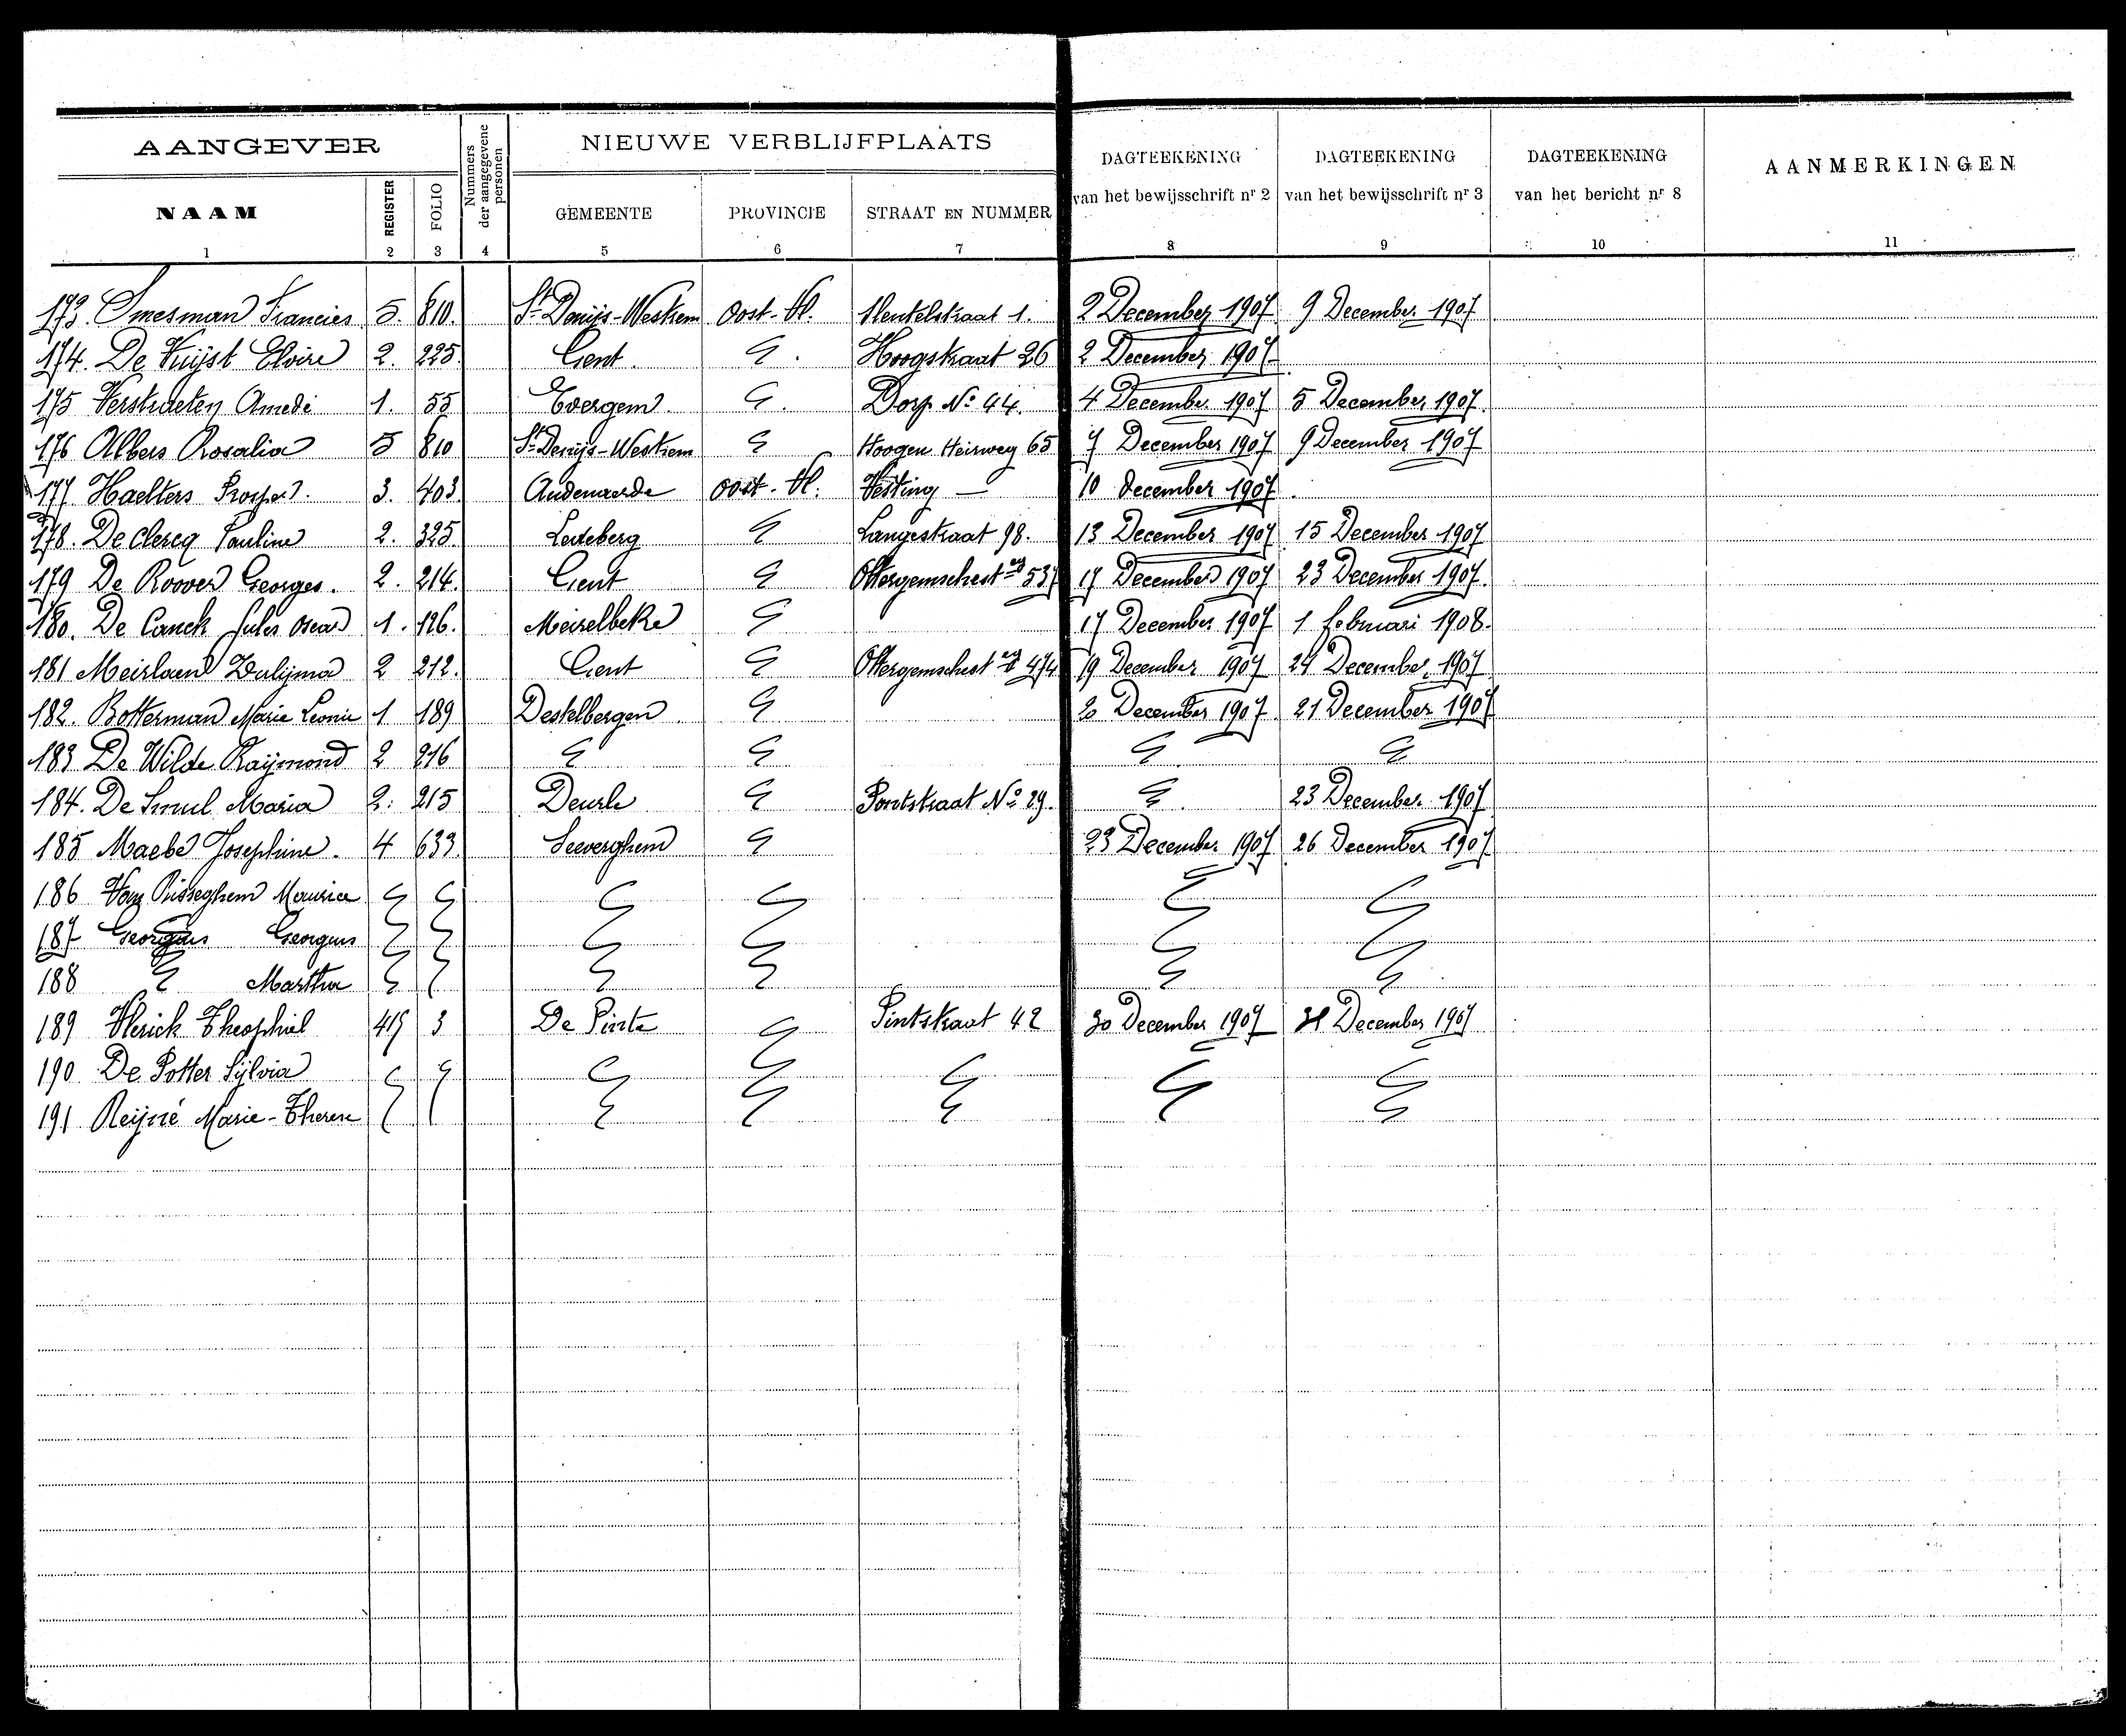 AANGEVER Nummers der aangegevene personen NIEUWE VERBLIJFPLAATS DAGTEEKENING van het bewijsschrift nr 2 DAGTEEKENING van het bewijsschrift nr 3 DAGTEEKENING van het bericht nr 8 AANMERKINGEN
NAAM REGISTER FOLIO GEMEENTE PROVINCIE STRAAT EN NUMMER
1 2 3 4 5 6 7 8 9 10 11
173. Smesman Francies 5. 810. St Denijs-Westrem Oost-Vl. Sleutelstraat 1. 2 December 1907 9 December 1907
174. De Vuijst Elvire 2. 225. Gent. 2 Hoogstraat 26 2 December 1907
175 Verstraeten Amedé 1. 55 Evergem. Dorp No 44. 4 December 1907 5 December 1907.
176 Albers Rosalia 5 810 St Denijs-Westrem Hoogen Heirweg 65 7 December 1907 9 December 1907
177. Haelters Prosper. 3. 403 Audenaerde Oost-Vl. Vesting — 10 december 1907
178. De Clercq Pauline 2. 325. Ledeberg Langestraat 98. 13 December 1907 15 December 1907
179 De Roover Georges. 2. 214. Gent Ottergemschest wg 537 17 December 1907 23 December 1907.
180. De Canck Jules Oscar 1. 126. Meirelbeke 17 December 1907 1 februari 1908.
181 Meirlaen 2 212. Gent Ottergemschest wg 474 19 December 1907 24 December 1907
182. Botterman Marie Leonie 1 189 Destelbergen 20 December 1907 21 December 1907
183 De Wilde Raijmond 2 216
184. De Smul Maria 2. 215 Deurle Pontstraat No 29. 23 December 1907
185 Maebe Josephine. 4 633. Seeverghem 23 December 1907 26 December 1907
186 Van Risseghem Maurice
187 Georgus Georgus
188 Martha
189 Vlerick Theophiel 415 3 De Pinte Pintstraat 42 30 December 1907 31 December 1907
190 De Potter Sijlvia
191 Reijné Marie-Therese